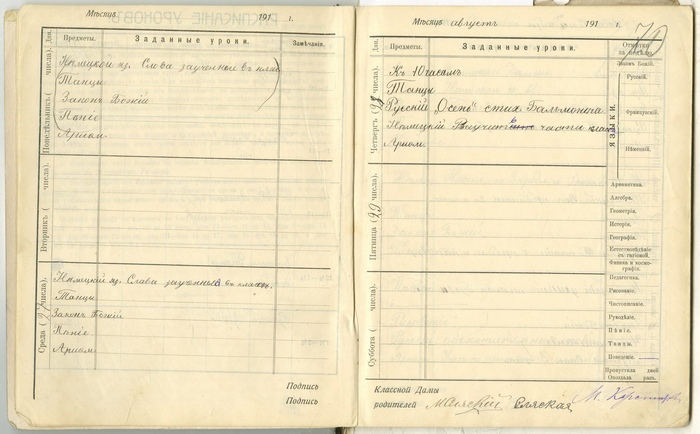 Мѣсяцъ 191 г.
Дни. Предметы. Заданные уроки. Замѣчанія.
Понедѣльникъ ( числа).
Нѣмецкій яз. Слова заученные въ клас
Танцы
Законъ Божій
Пѣніе
Ариѳм.
Вторникъ ( числа).
Среда (27 числа).
Нѣмецкій яз. Слова заученныя въ классѣ.
Танцы
Законъ Божій
Пѣніе
Ариѳм.
Подпись
Подпись
Мѣсяцъ августъ 191 г.
Дни. Предметы. Заданные уроки. Отмѣтки за недѣлю.
Четвергъ (28 числа).
Къ 10 часамъ
Танцы
Русскій „Осень" стих. Бальмонта
Нѣмецкій Выучить части
Ариѳм.
Пятница (29 числа).
Суббота ( числа).
Законъ Божій.
ЯЗЫКИ.
Русскій.
Французскій.
Нѣмецкій.
Ариѳметика.
Алгебра.
Геометрія.
Исторія.
Географія.
Естествовѣдѣніе съ гигіеной.
Физика и космографія.
Педагогика.
Рисованіе.
Чистописаніе.
Рукодѣліе.
Пѣніе.
Танцы.
Поведеніе.
Пропустила дней
Опоздала разъ.
Классной Дамы
родителей